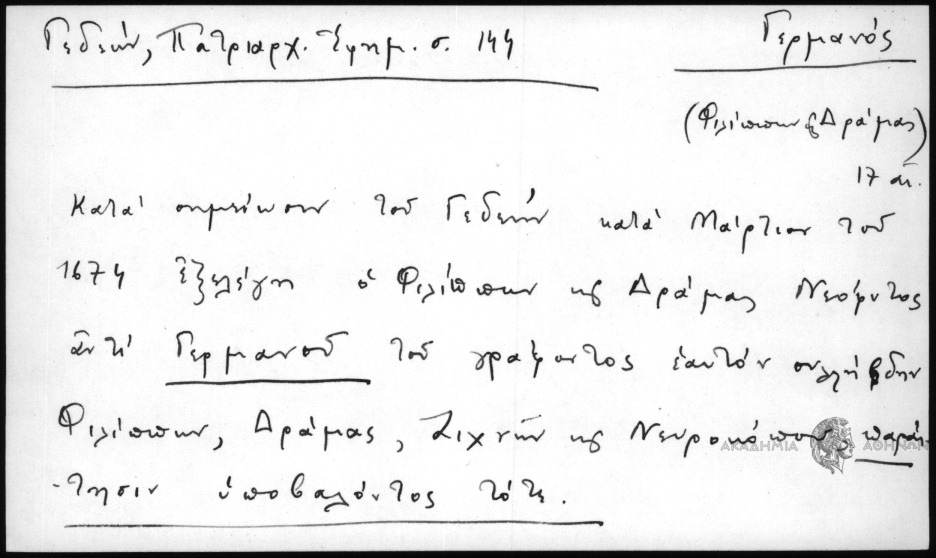 Γεδεών, Πατριαρχ. Ἐφημ. σ. 144
Γερμανός
(Φιλίππων ϗ Δράμας)
17 αἰ.
Κατά σημείωσιν τοῦ Γεδεών κατά Μάρτιον τοῦ
1674 ἐξελέγη ὁ Φιλίππων ϗ Δράμας Νεόφυτος
ἀντί Γερμανοῦ τοῦ γράφοντος ἑαυτόν συλλήβδην
Φιλίππων, Δράμας, Ζιχνῶν ϗ Νευροκόπου, παραί-
-τησιν ὑποβαλόντος τότε.
ΑΚΑΔΗΜΙΑ ΑΘΗΝΩΝ